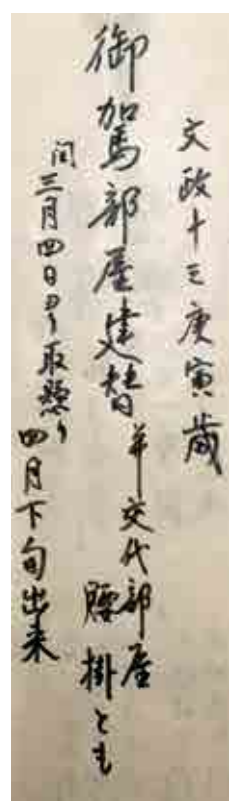 文政十三庚寅歳
御駕部屋建替
并交代部屋
腰掛とも
閏三月四日ゟ取懸り
四月下旬出来